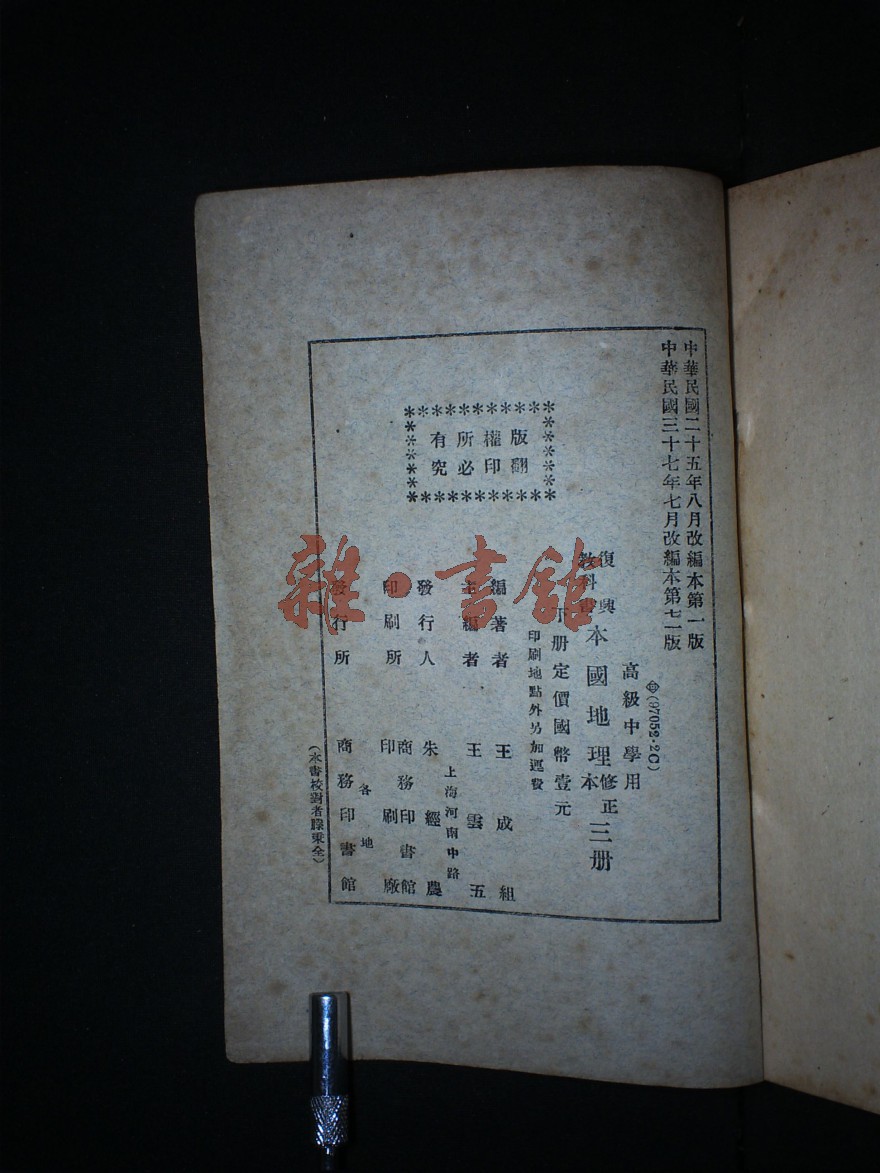 中華民國二十五年八月改編本第一版
中華民國三十七年七月改編本第七二版
(97052·2C)
高級中學用
復興教科書 本國地理 修正本 三册
下册定價國幣壹元
印刷地點外另加運費
版權所有
翻印必究
編著者 王成組
主編者 王雲五
發行人 朱經農
上海河南中路
印刷所 商務印書館印刷廠
各地
發行所 商務印書館
(本書校對者滕秉全)
雜·書館